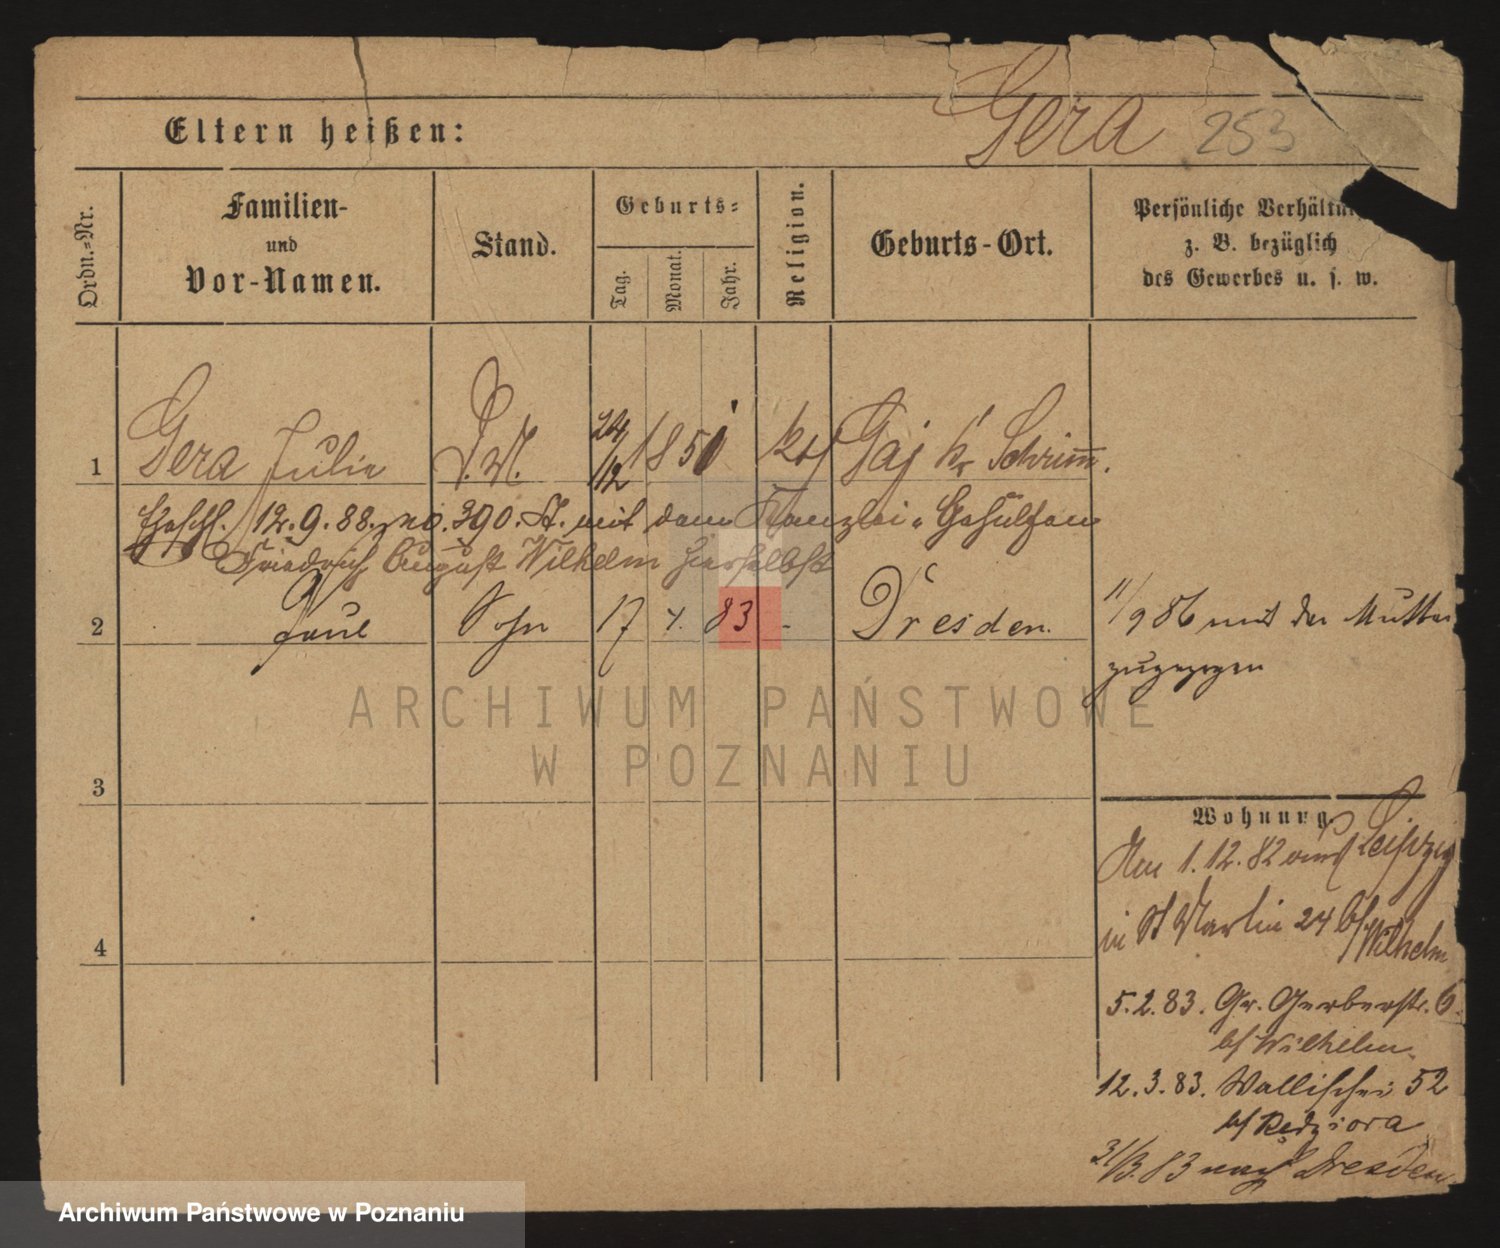 Gera 253
Eltern heißen:
Ordn.-Nr.
Familien-
und
Vor-Namen.
Stand.
Geburts-
Tag.
Monat.
Jahr.
Religion.
Geburts-Ort.
Persönliche Verhältn
z. B. bezüglich
des Gewerbes u. s. w.
1 Gera Julie 24/12 1851 Kth Gaj Kr Schrimm.
Eheschl. 12.9.88. No. 390. St. mit dem Kanzlei-Gehülfen
Friedrich August Wilhelm hierselbst
2 Paul Sohn 17 4. 83 - Dresden. 11/9 86 mit der Mutter
zugezogen
3
Wohnung.
Am 1.12.82 aus Leipzig
in St Martin 24 b/ Wilhelm
4
5.2.83. Gr. Gerberstr. 6.
b/ Wilhelm.
12.3.83. Wallischei 52
b/ Kędziora
31/3.83 nach Dresden
ARCHIWUM PAŃSTWOWE
W POZNANIU
Archiwum Państwowe w Poznaniu